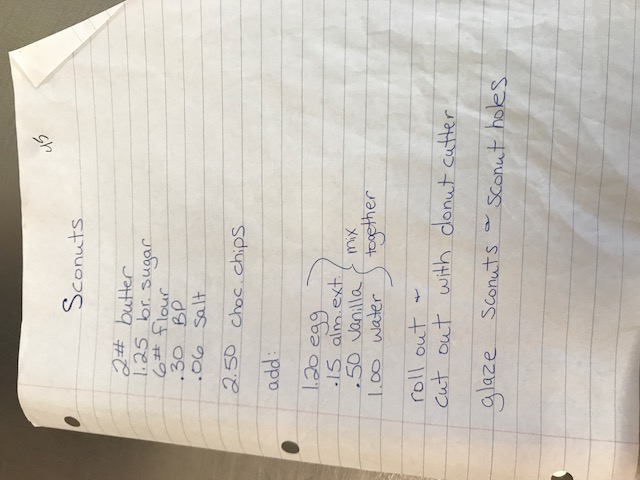 45
Sconuts
2# butter
1.25 br. sugar
6# flour
.30 BP
.06 salt
2.50 choc. chips
add:
1.20 egg
.15 alm. ext.
.50 vanilla
1.00 water
mix
together
roll out +
cut out with donut cutter
glaze sconuts & sconut holes